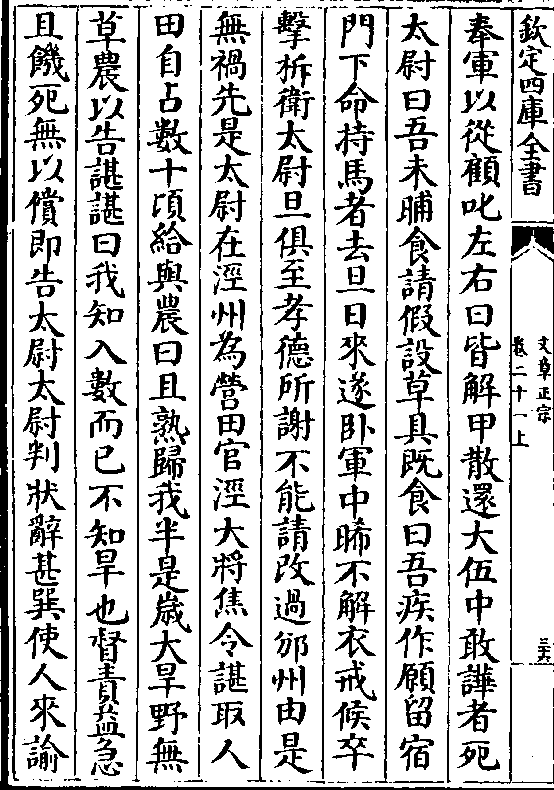 欽定四庫全書
文章正宗
卷二十一上
三六
奉軍以從顧叱左右曰皆解甲散還大伍中敢譁者死
太尉曰吾未晡食請假設草具既食曰吾疾作願留宿
門下命持馬者去旦日來遂卧軍中晞不解衣戒候卒
擊柝衛太尉旦俱至孝德所謝不能請改過邠州由是
無禍先是太尉在涇州為營田官涇大將焦令諶取人
田自占數十頃給與農曰且熟歸我半是歲大旱野無
草農以告諶諶曰我知入數而已不知旱也督責益急
且饑死無以償即告太尉太尉判狀辭甚巽使人來諭